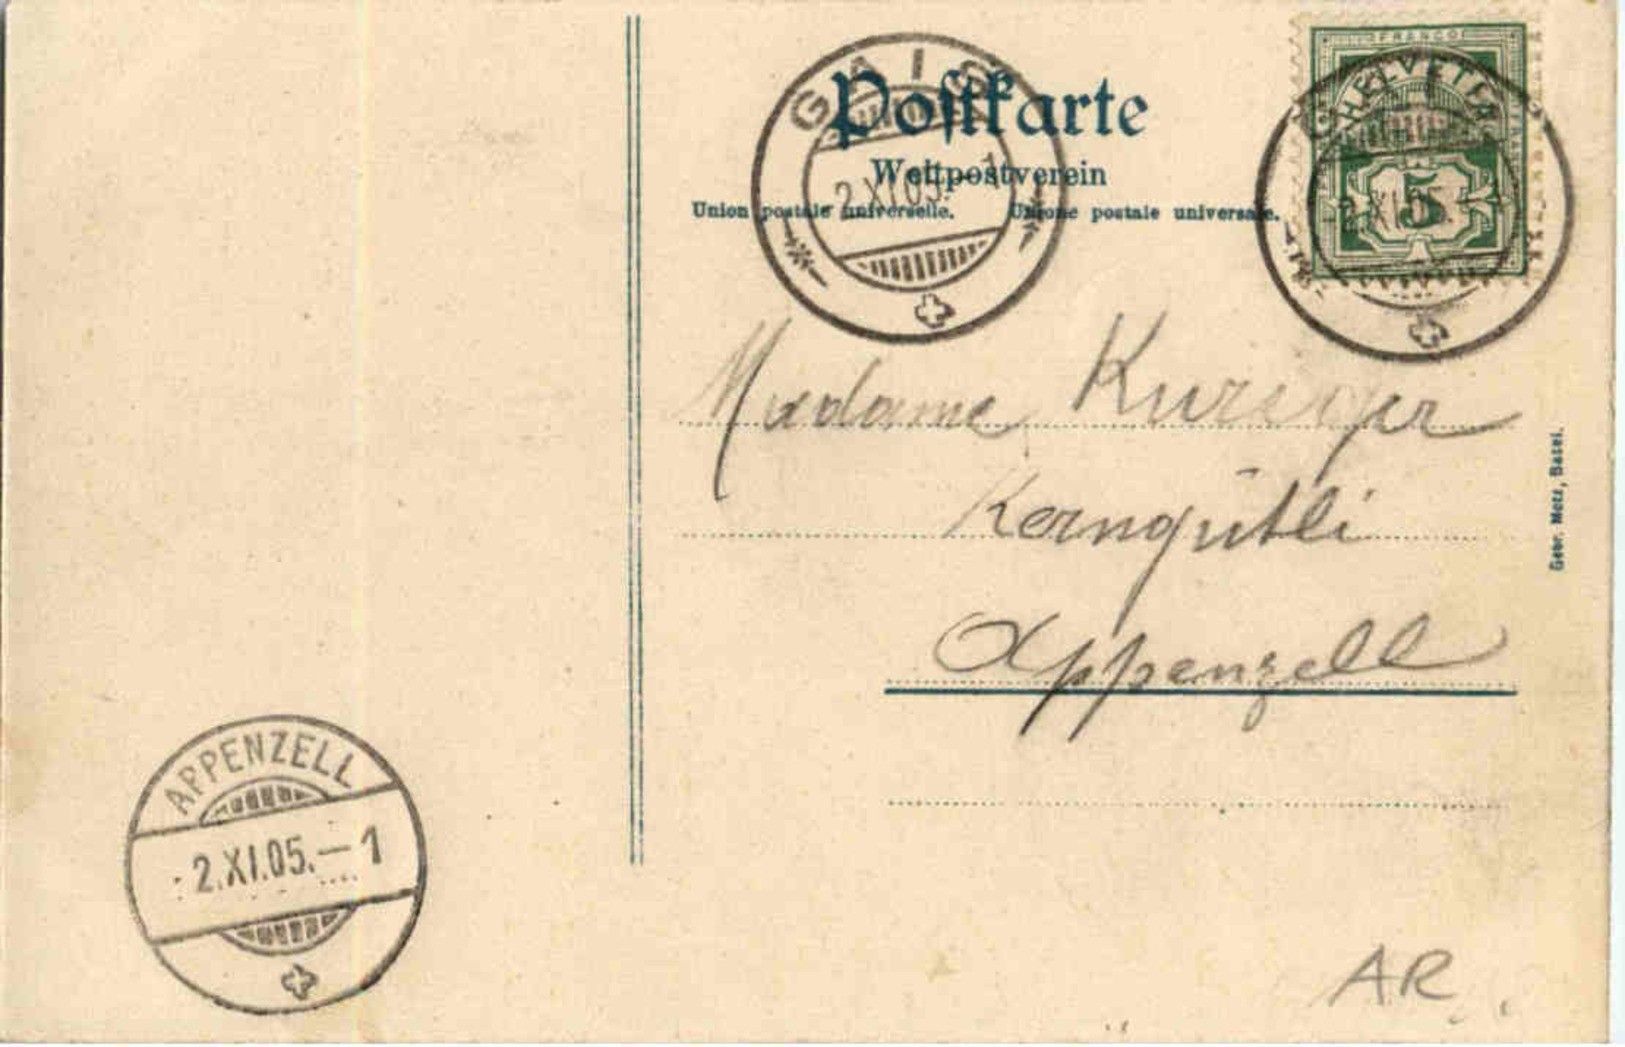 Postkarte
Weltpostverein
Union postale universelle. Unione postale universale.
GAIS
2.XI.05.-1
FRANCO
HELVETIA
5
XI.05.
Madame
Korngütli
Appenzell
Gebr. Metz, Basel.
APPENZELL
2.XI.05.-1
AR